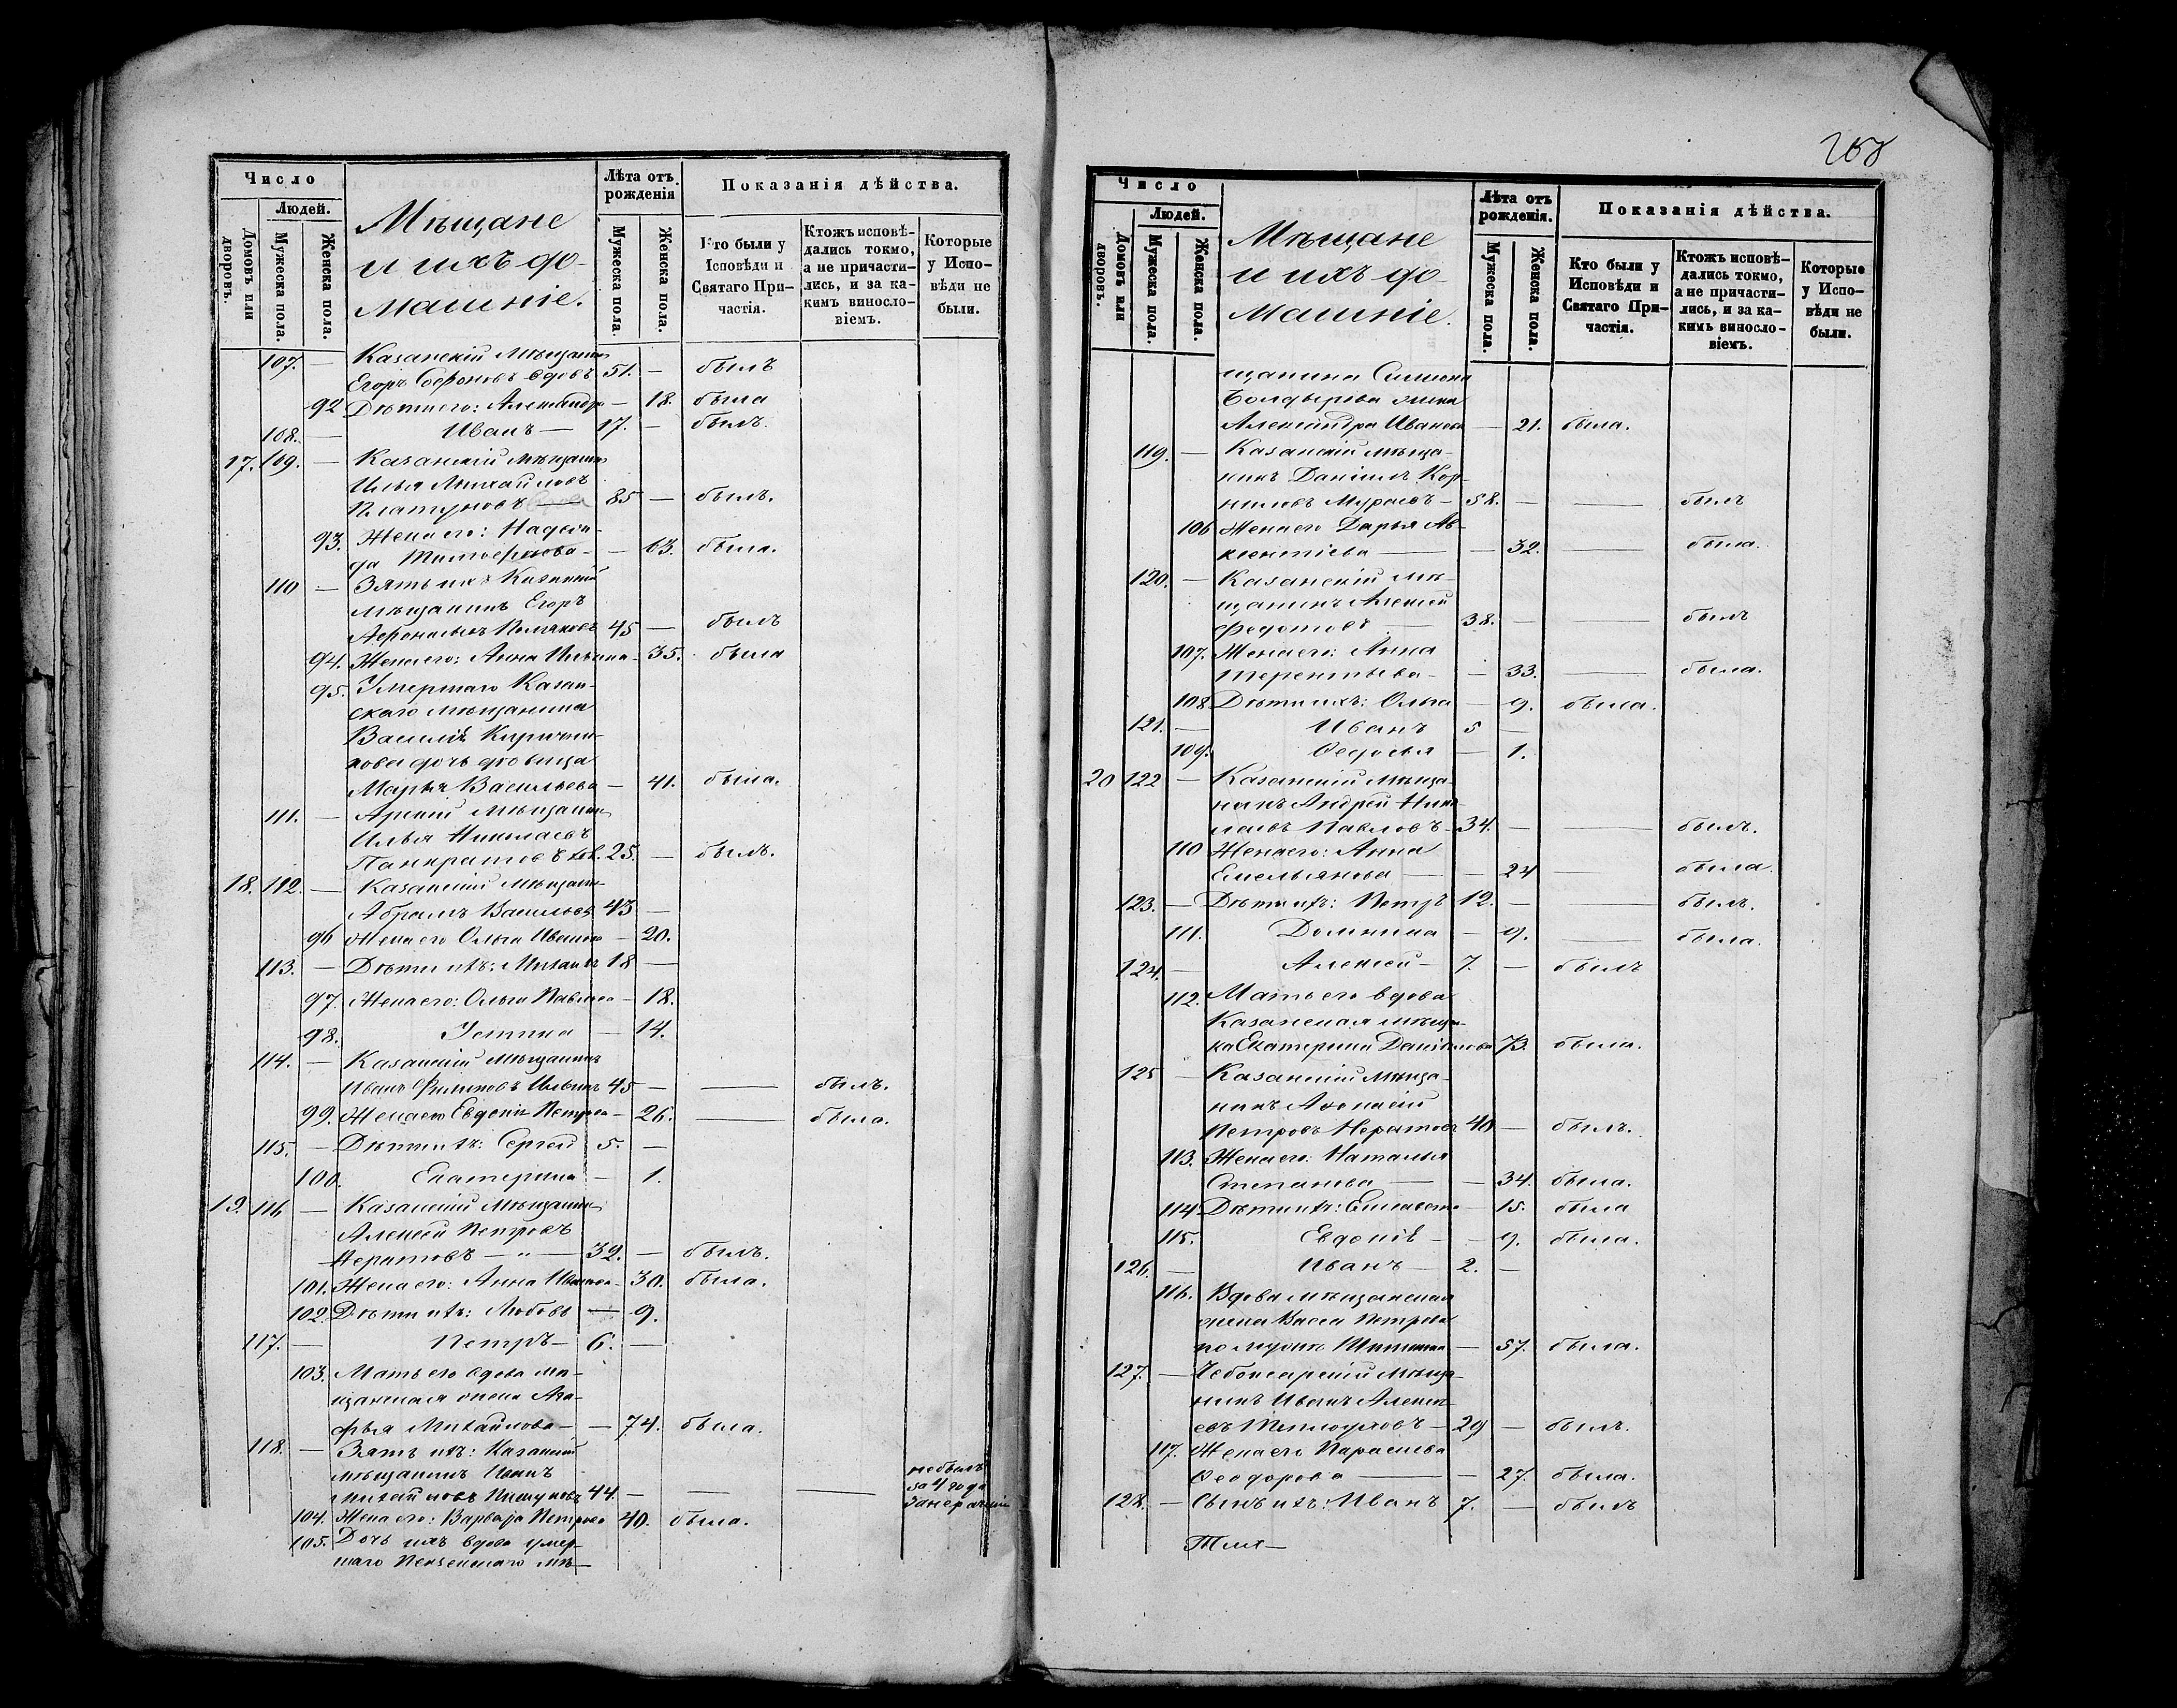 Число
Людей.
Домовъ или дворовъ.
Мужеска пола.
Женска пола.
Мѣщане
и ихъ до-
машніе.
Лѣта отъ рожденія
Мужеска пола.
Женска пола.
Показанія дѣйства.
Кто были у Исповѣди и Святаго При-частія.
Ктожъ исповѣ-дались токмо, а не причасти-лись, и за ка-кимъ виносло-віемъ.
Которые у Испо-вѣди не были.
107. — Казанскій мѣщанин
Егоръ Софоновъ вдовъ 51. — былъ
92 Дѣти его: Александра — 18. была
108. — Иванъ — 17. — былъ.
17. 109. — Казанскій мѣщанин
Илья Михайловъ
Платуновъ 85 — былъ.
93. Жена его: Надеж-
да Тимофеева — — 63. была.
110 — Зять их Казанскій
мѣщанинъ Егоръ
45 — былъ
94. Жена его: Анна Ильина — 35. была
95. Умершаго Казан-
скаго мѣщанина
дочь девица
Марья Васильева — 41. была.
111. — Арскій мѣщанин
Илья Николаевъ
Панкратовъ 25. — былъ.
18. 112. — Казанскій мѣщанин
Абрамъ Васильев 43 —
96 Жена его Ольга Иванова — 20.
113. — Дѣти ихъ: Михаилъ 18 —
97. Жена его: Ольга Павлова — 18.
98. Устина — 14.
114. — Казанскій мѣщанинъ
Иванъ Филиповъ Ильинъ 45 — — былъ.
99. Жена его Евдокія Петрова — 26. — была.
115. — Дѣти ихъ: Сергей 5. —
100. Екатерина — 1.
19. 116 — Казанскій мѣщанин
Алексей Петровъ
Нератовъ — „ — 32. — былъ.
101. Жена его: Анна Иванова — 30. была.
102. Дѣти ихъ: Любовь — 9.
117. — Петръ — 6. —
103. Мать его вдова мѣ-
щанская жена Ага-
фья Михайлова — — 74. была.
118. — Зять ихъ: Казанскій
мѣщанинъ Иванъ
Михайловъ Пишуновъ 44. — — — небылъ
за 4 года
104. Жена его: Варвара Петрова 40. была.
105. Дочь ихъ вдова умер-
шаго Пензенскаго мѣ-
268
Число
Людей.
Домовъ или дворовъ.
Мужеска пола.
Женска пола.
Мѣщане
и ихъ до-
машніе.
Лѣта отъ рожденія.
Мужеска пола.
Женска пола.
Показанія дѣйства.
Кто были у Исповѣди и Святаго При-частія.
Ктожъ исповѣ-дались токмо, а не причасти-лись, и за ка-кимъ виносло-віемъ.
Которые у Испо-вѣди не были.
щанина Симиона
Болдырева жена
Александра Иванова — 21. была.
119. — Казанскій мѣща-
нинъ Даніилъ Кор-
ниловъ Муравъ — 58. — — былъ
106 Жена его Дарья Ав-
ксентіева — — 32. — была.
120. — Казанскій мѣ-
щанинъ Алексей
Федотовъ — 38. — — былъ
107. Жена его: Анна
Терентьева — — 33. — была.
108 Дѣти ихъ: Ольга — 9. была.
121. — Иванъ 5 —
109. Ѳедосья — 1.
20 122 — Казанскій мѣща-
нинъ Андрей Нико-
лаевъ Павловъ — 34. — — былъ.
110 Жена его: Анна
Емельянова — — 24 — была.
123. — Дѣти ихъ: Петръ 12. — — былъ.
111. Домнина — 9. — была.
124. — Алексей — 7. — былъ
112. Мать его вдова
Казанская мѣщан-
ка Екатерина Данилова 73. была.
125 — Казанскій мѣща-
нинъ Аѳонасій
Петровъ Нератовъ 40 — былъ.
113. Жена его: Наталья
Степанова — — 34. была.
114 Дѣти ихъ: Елисавета — 15. была
115. Евдокія — — 9. была.
126. — Иванъ — 2. —
116. Вдова мѣщанская
жена Васса Петрова
по мужѣ — 57. была.
127. — Чебоксарскій мѣща-
нинъ Иванъ Алексе-
евъ Теплоуховъ — 29 — былъ.
117. Жена его Параскева
Ѳеодорова — — 27. была.
128. — Сынъ ихъ: Иванъ 7. — былъ